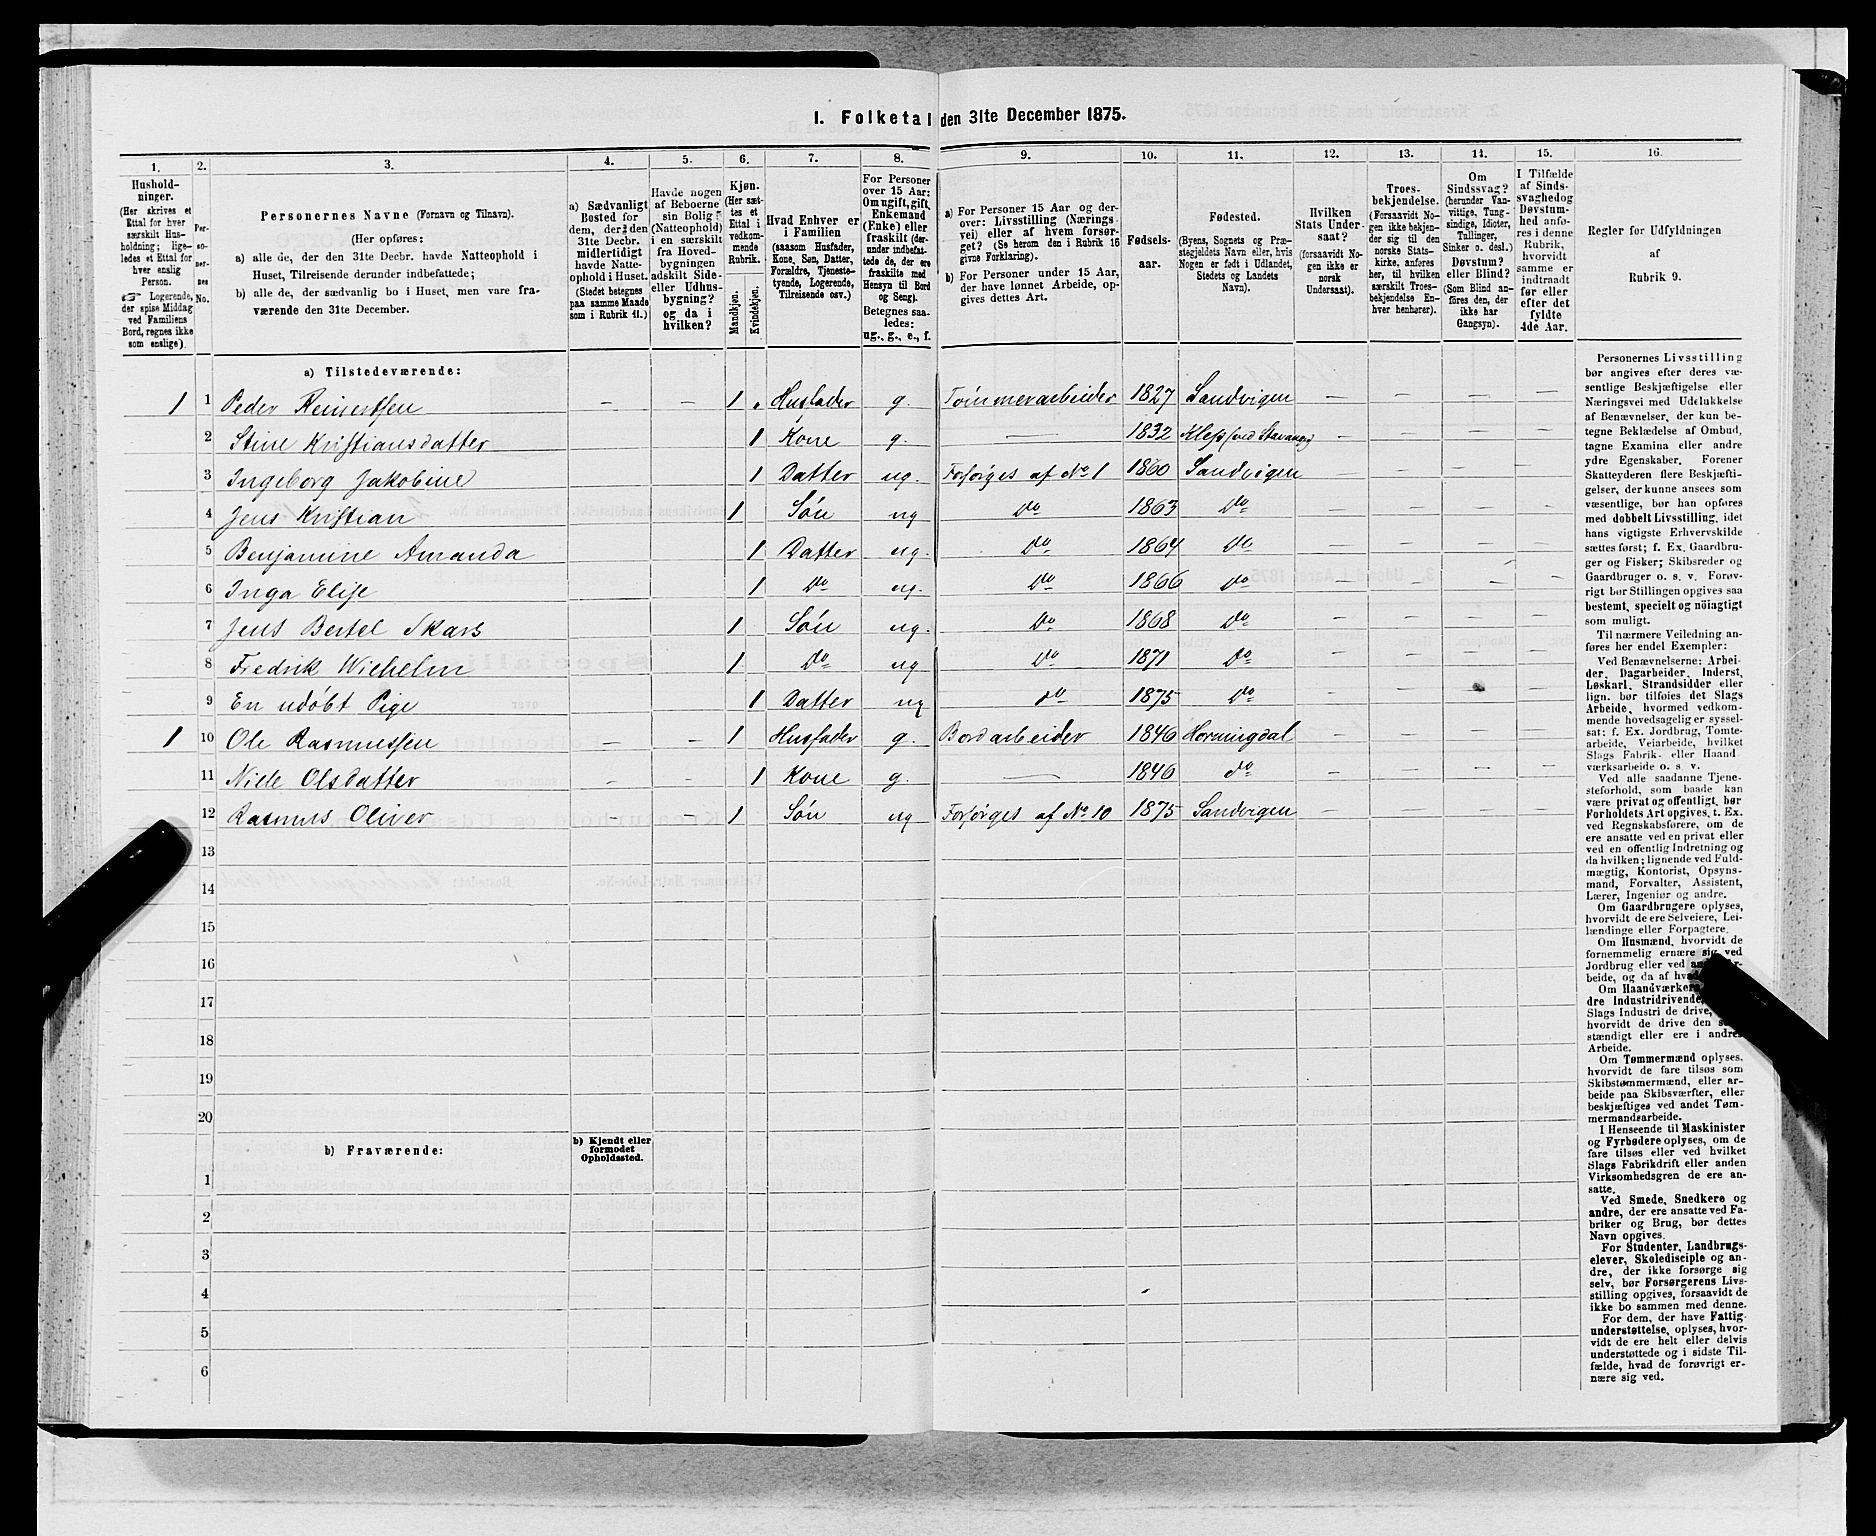 1. Folketal den 31te December 1875.
1. 2. 3. 4. 5. 6. 7. 8. 9. 10. 11. 12. 13. 14. 15. 16.
Hushold-
ninger.
(Her skrives et
Ettal for hver
særskilt Hus-
holdning; lige-
ledes et Ettal for
hver enslig
Person.
☞ Logerende,
der spise Middag
ved Familiens
Bord, regnes ikke
som enslige).
Per-
so-
ner-
nes
No.
Personernes Navne (Fornavn og Tilnavn).
(Her opføres:
a) alle de, der den 31te Decbr. havde Natteophold i
Huset, Tilreisende derunder indbefattede;
b) alle de, der sædvanlig bo i Huset, men vare fra-
værende den 31te December.
a) Sædvanligt
Bosted for
dem, der den
31te Decbr.
midlertidigt
havde Natte-
ophold i Huset.
(Stedet betegnes
paa samme Maade
som i Rubrik 11.)
Havde nogen
af Beboerne
sin Bolig
(Natteophold)
i en særskilt
fra Hoved-
bygningen
adskilt Side-
eller Udhus-
bygning?
og da i
hvilken?
Kjøn.
(Her sæt-
tes et
Ettal i
vedkom-
mende
Rubrik.
Mandkjøn.
Kvindekjøn.
Hvad Enhver er
i Familien
(saasom Husfader,
Kone, Søn, Datter,
Forældre, Tjeneste-
tyende, Logerende,
Tilreisende osv.)
For Personer
over 15 Aar:
Om ugift, gift,
Enkemand
(Enke) eller
fraskilt (der-
under indbefat-
tede de, der ere
fraskilte med
Hensyn til Bord
og Seng).
Betegnes saa-
ledes:
ug., g., e., f.
a) For Personer 15 Aar og der-
over: Livsstilling (Nærings-
vei) eller af hvem forsør-
get? (Se herom den i Rubrik 16
givne Forklaring).
b) For Personer under 15 Aar,
der have lønnet Arbeide, op-
gives dettes Art.
Fødsels-
aar.
Fødested.
(Byens, Sognets og Præ-
stegjeldets Navn eller, hvis
Nogen er født i Udlandet,
Stedets og Landets
Navn).
Hvilken
Stats Under-
saat?
(forsaavidt No-
gen ikke er
norsk
Undersaat).
Troes-
bekjendelse.
(Forsaavidt No-
gen ikke bekjen-
der sig til den
norske Stats-
kirke, anføres
her, til hvilken
særskilt Troes-
bekjendelse En-
hver henhører).
Om
Sindssvag?
(herunder Van-
vittige, Tung-
sindige, Idioter,
Tullinger,
Sinker o. desl.)
Døvstum?
eller Blind?
(Som Blind an-
føres den, der
ikke har
Gangsyn).
I Tilfælde
af Sinds-
svaghed og
Døvstum-
hed anfø-
res i denne
Rubrik,
hvorvidt
samme er
indtraadt
før eller
efter det
fyldte
4de Aar.
Regler for Udfyldningen
af
Rubrik 9.
a) Tilstedeværende:
1 1 Peder Reinertsen – – 1 Husfader g. Tømmerarbeider 1827 Sandvigen – – – –
2 Stine Kristiansdatter 1 Kone g. – 1832 Klep ved Stavanger – – – –
3 Ingeborg Jakobine 1 Datter ug. Forsørges af No 1 1860 Sandvigen – – – –
4 Jens Kristian 1 Søn ug do 1863 Do – – – –
5 Benjamine Amanda 1 Datter ug. do 1864 Do – – – –
6 Inga Elise 1 Do ug. do 1866 do – – – –
7 Jens Bertel Skars 1 Søn ug. Do 1868 Do – – – –
8 Fredrik Wichelm 1 Do ug do 1871 Do – – – –
9 En udøbt Pige 1 Datter ug do 1875 Do – – – –
1 10 Ole Rasmussen – – 1 Husfader g. Bordarbeider 1846 Horningdal – – – –
11 Olsdatter – – 1 Kone g. – 1846 do – – – –
12 Rasmus Oliver – – 1 Søn ug Forsørges af No 10 1875 Sandvigen – – – –
13
14
15
16
17
18
19
20
b) Fraværende:
b) Kjendt eller
formodet
Opholdssted.
1
2
3
4
5
6
Personernes Livsstilling
bør angives efter deres væ-
sentlige Beskjæftigelse eller
Næringsvei med Udelukkelse
af Benævnelser, der kun be-
tegne Beklædelse af Ombud,
tagne Examina eller andre
ydre Egenskaber. Forener
Skatteyderen flere Beskjæfti-
gelser, der kunne ansees som
væsentlige, bør han opføres
med dobbelt Livsstilling, idet
hans vigtigste Erhvervskilde
sættes først; f. Ex. Gaardbru-
ger og Fisker; Skibsreder og
Gaardbruger o. s. v. Forøv-
rigt bør Stillingen opgives saa
bestemt, specielt og nöiagtigt
som muligt.
Til nærmere Veiledning an-
føres her endel Exempler:
Ved Benævnelserne: Arbei-
der, Dagarbeider, Inderst,
Løskarl, Strandsidder eller
lign. bør tilføies det Slags
Arbeide, hvormed vedkom-
mende hovedsagelig er syssel-
sat; f. Ex. Jordbrug, Tomte-
arbeide, Veiarbeide, hvilket
Slags Fabrik- eller Haand-
værksarbeide o. s. v.
Ved alle saadanne Tjene-
steforhold, som baade kan
være privat og offentligt, bør
Forholdets Art opgives, t. Ex.
ved Regnskabsførere, om de
ere ansatte ved en privat eller
ved en offentlig Indretning og
da hvilken; lignende ved Fuld-
mægtig, Kontorist, Opsyns-
mand, Forvalter, Assistent,
Lærer, Ingeniør og andre.
Om Gaardbrugere oplyses,
hvorvidt de ere Selveiere, Lei-
lændinge eller Forpagtere.
Om Husmænd, hvorvidt de
fornemmelig ernære sig ved
Jordbrug eller ved
beide, og da af
Om Haandværkere
dre Industridrivende,
Slags Industri de drive,
hvorvidt de drive den
stændigt eller ere i andres
Arbeide.
Om Tømmermænd oplyses,
hvorvidt de fare tilsøs som
Skibstømmermænd, eller ar-
beide paa Skibsværfter, eller
beskjæftiges ved andet Tøm-
mermandsarbeide.
I Henseende til Maskinister
og Fyrbødere oplyses, om de
fare tilsøs eller ved hvilket
Slags Fabrikdrift eller anden
Virksomhedsgren de ere an-
satte.
Ved Smede, Snedkere og
andre, der ere ansatte ved Fa-
briker og Brug, bør dettes
Navn opgives.
For Studenter, Landbrugs-
elever, Skoledisciple og an-
dre, der ikke forsørge sig
selv, bør Forsørgerens Livs-
stilling opgives, forsaavidt de
ikke bo sammen med denne.
For dem, der have Fattig-
understøttelse, oplyses, hvor-
vidt de ere helt eller delvis
understøttede og i sidste Til-
fælde, hvad de forøvrigt er-
nære sig ved.